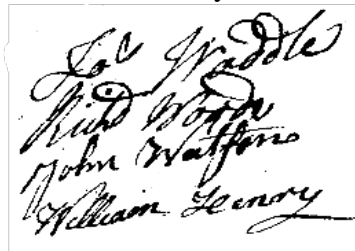 Jos Waddle
Richd Woods
John Watson
William Henry